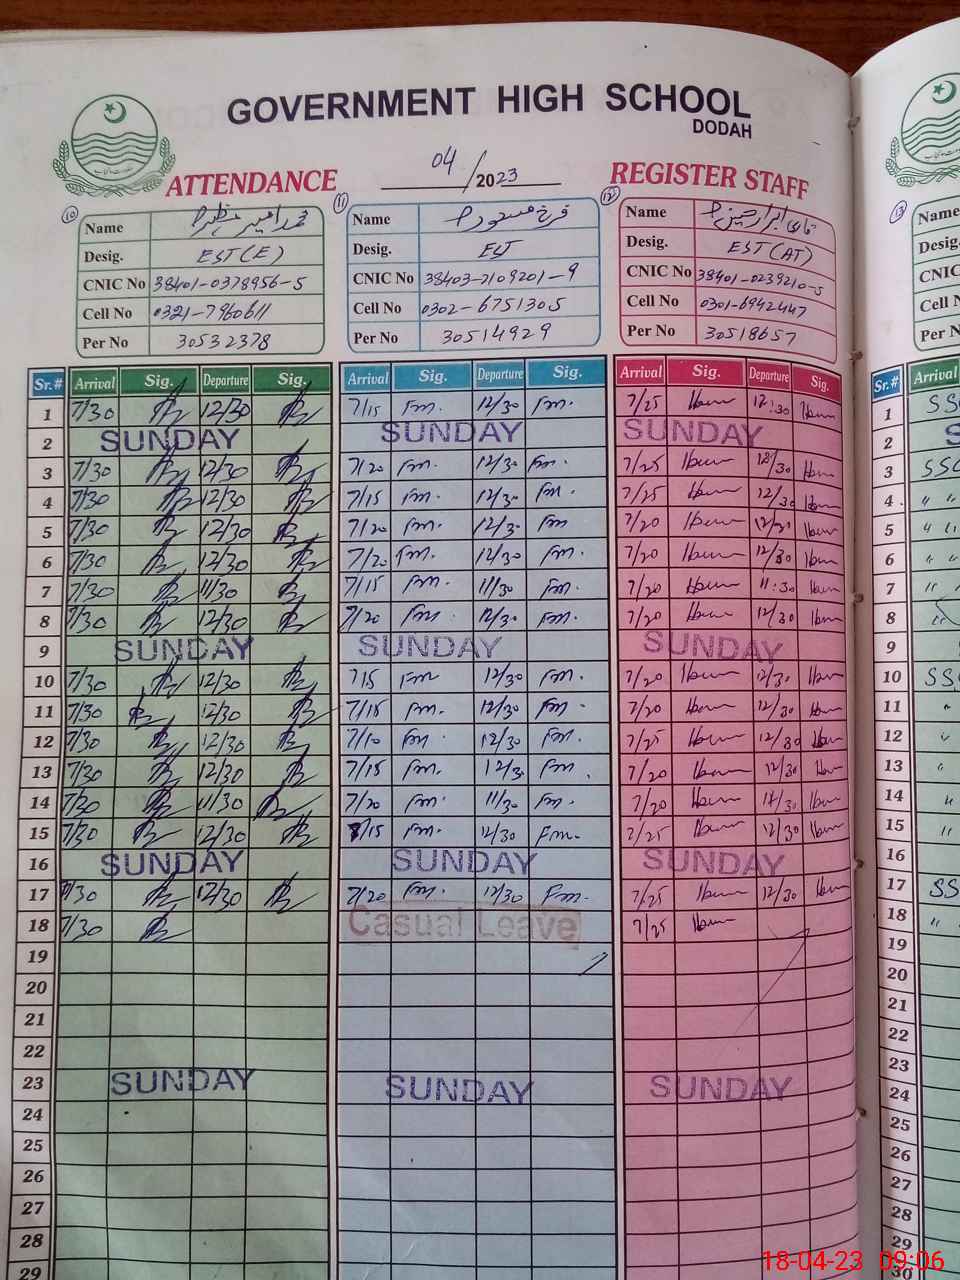 GOVERNMENT HIGH SCHOOL
DODAH
ATTENDANCE 04/2023 REGISTER STAFF
10 11 12 13
Name Name فرخ مسعود Name Name
Desig. EST (E) Desig. EST Desig. EST (AT) Desig.
CNIC No 38401-0378956-5 CNIC No 38403-2109201-9 CNIC No 38401-0239210-5 CNIC
Cell No 0321-7960611 Cell No 0302-6751305 Cell No 0301-6942447 Cell N
Per No 30532378 Per No 30514929 Per No 30518657 Per No
Sr.# Arrival Sig. Departure Sig. Arrival Sig. Departure Sig. Arrival Sig. Departure Sig. Sr.# Arrival
1 7/30 12/30 7/15 Fm. 12/30 Fm. 7/25 12:30 1 SS
2 SUNDAY SUNDAY SUNDAY 2 S
3 7/30 12/30 7/20 Fm. 12/30 Fm. 7/25 12/30 3 SS
4 7/30 12/30 7/15 Fm. 12/30 Fm. 7/25 12/30 4 " "
5 7/30 12/30 7/20 Fm. 12/30 Fm 7/20 5
6 7/30 12/30 7/20 Fm. 12/30 Fm. 7/20 12/30 6 " "
7 7/30 11/30 7/15 Fm. 11/30 Fm. 7/20 11:30 7 "
8 7/30 12/30 7/20 Fm. 12/30 Fm. 7/20 12/30 8 "
9 SUNDAY SUNDAY SUNDAY 9
10 7/30 12/30 715 Fm 12/30 Fm. 7/20 12/30 10 SS
11 7/30 12/30 7/15 Fm. 12/30 Fm. 7/20 12/30 11 "
12 7/30 12/30 7/10 Fm. 12/30 Fm. 7/25 12/30 12 "
13 7/30 12/30 7/15 Fm. 12/30 Fm. 7/20 12/30 13 "
14 7/30 11/30 7/20 Fm. 11/30 Fm. 7/20 14 "
15 7/30 12/30 7/15 Fm. 12/30 Fm. 7/25 12/30 15 "
16 SUNDAY SUNDAY SUNDAY 16
17 7/30 12/30 7/20 Fm. 12/30 Fm. 7/25 12/30 17 SS
18 7/30 Casual Leave 7/25 18 "
19 19
20 20
21 21
22 22
23 SUNDAY SUNDAY SUNDAY 23
24 24
25 25
26 26
27 27
28 28
29 29
30
18-04-23 09:06